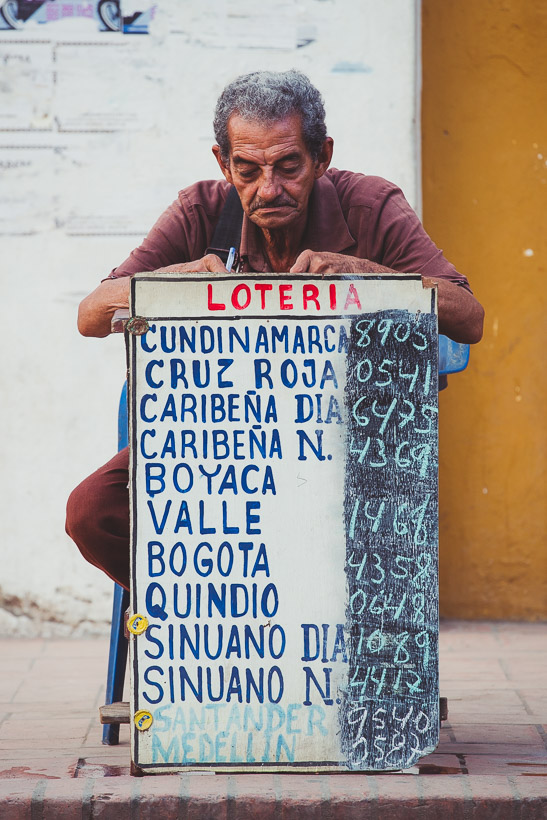 LOTERIA
CUNDINAMARCA 8905
CRUZ ROJA 0541
CARIBEÑA DIA 6475
CARIBEÑA N. 4369
BOYACA
VALLE
BOGOTA 4358
QUINDIO 0648
SINUANO DIA 1089
SINUANO N. 4412
SANTANDER 9540
MEDELLIN 0582